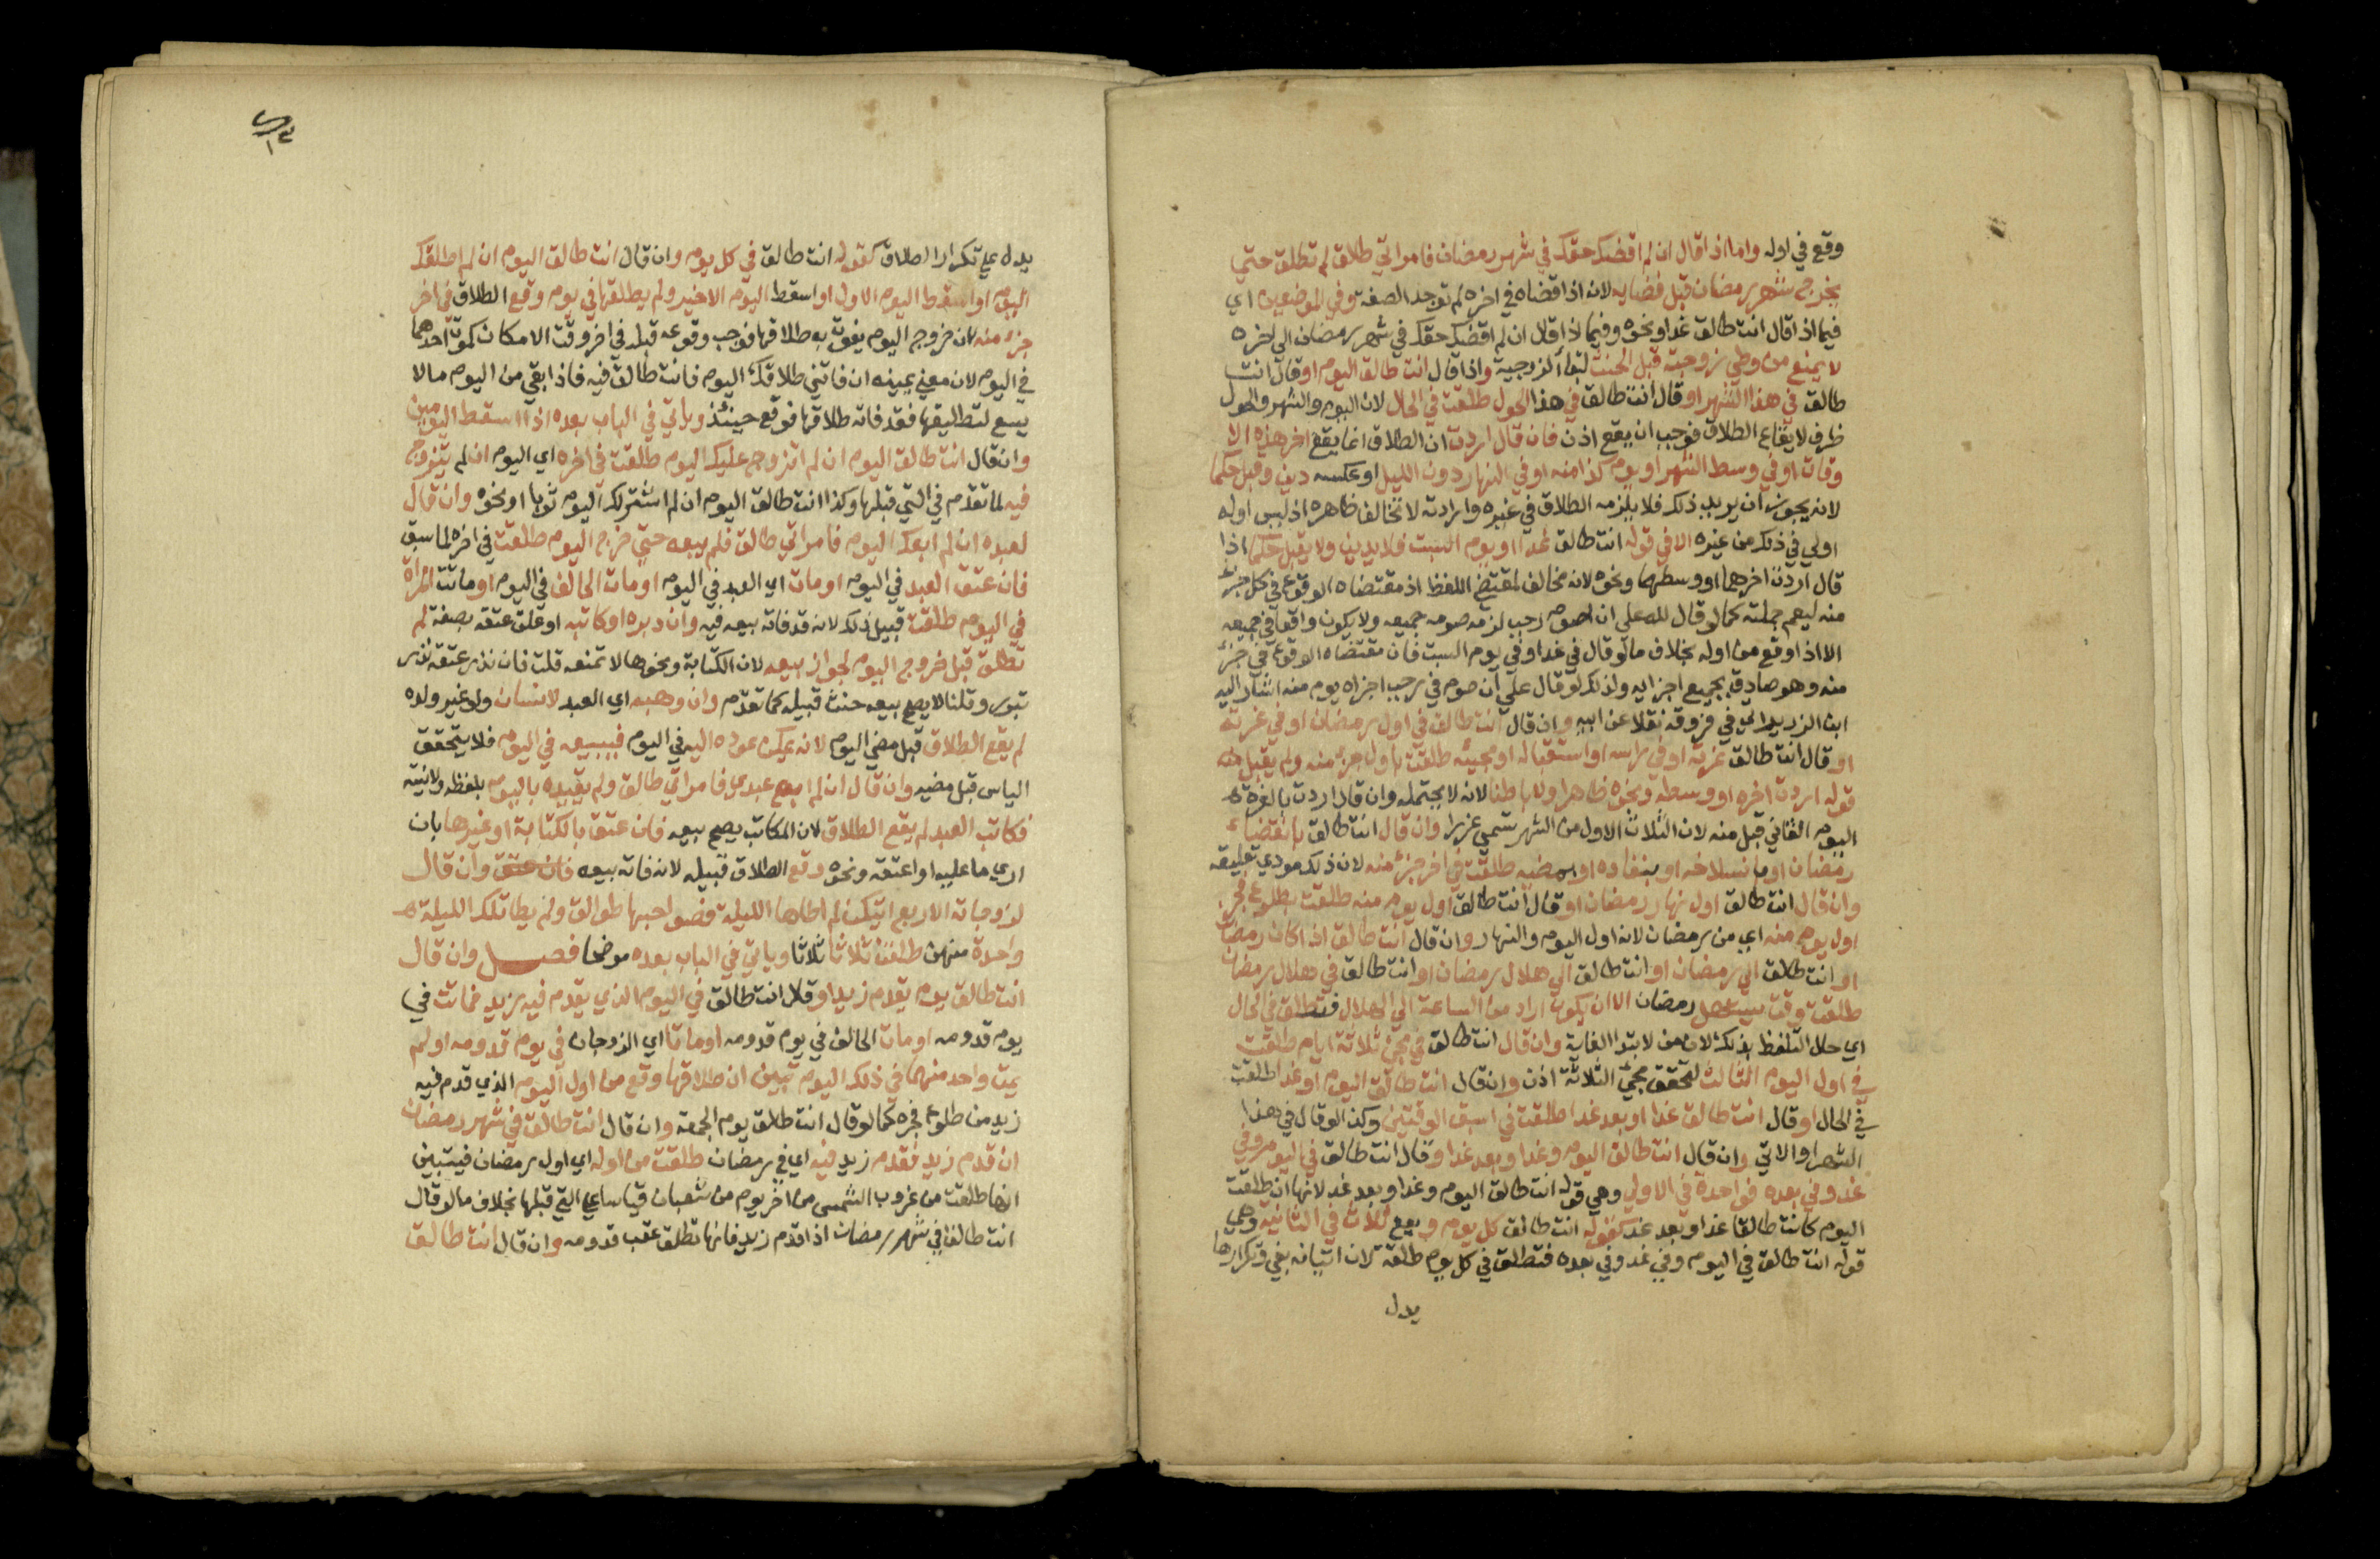 وقع في اوله واما اذا قال ان لم اقضك حقك في شهر رمضان فامراتي طالق لم تطلق حتي
يخرج شهر رمضان قبل قضايه لانه اذا قضاه في اخره لم توجد الصفة وفي الموضعين اي
فيما اذا قال انت طالق غدا ونحوه وفيما اذا قال ان لم اقضك حقك في شهر رمضان الي اخره
لا يمنع من وطي زوجته قبل الحنث لبقاء الزوجية واذا قال انت طالق اليوم او قال انت
طالق في هذا الشهر او قال انت طالق في هذا الحول طلقت في الحال لان اليوم والشهر والحول
ظرف لايقاع الطلاق فوجب ان يقع اذن فان قال اردت ان الطلاق انما يقع اخر هذه الا
وقات او في وسط الشهر او يوم كذا منه او في النهار دون الليل او عكسه دين وقبل حكما
لانه يجوز ان يريد ذلك فلا يلزمه الطلاق في غيره وارادته لا تخالف ظاهره اذ ليس اوله
اولي في ذلك من غيره الا في قوله انت طالق غدا او يوم السبت فلا يدين ولا يقبل حكما اذا
قال اردت اخرهما او وسطهما ونحوه لانه مخالف لمقتضي اللفظ اذ مقتضاه الوقوع في كل جزء
منه ليعم جملته كما لو قال لله علي ان اصوم رجب لزمه صومه جميعه ولا يكون واقعا في جميعه
الا اذا وقع من اوله بخلاف ما لو قال في غد او في يوم السبت فان مقتضاه الوقوع في جزء
منه وهو صادق بجميع اجزايه ولذلك لو قال علي ان صوم في رجب اجزاه يوم منه اشار اليه
ابن الزريراني في فروقه نقلا عن ابيه وان قال انت طالق في اول رمضان او في غرته
او قال انت طالق غرته او في راسه او استقباله او مجيئه طلقت باول جزء منه ولم يقبل منه
قوله اردت اخره او وسطه ونحوه ظاهرا ولا باطنا لانه لا يحتمله وان قال اردت بالغرة
اليوم الثاني قبل منه لان الثلاث الاول من الشهر تسمي غررا وان قال انت طالق بانقضاء
رمضان او بانسلاخه او بنفاده او بمضيه طلقت في اخر جزء منه لان ذلك مودي تعليقه
وان قال انت طالق اول نهار رمضان او قال انت طالق اول يوم منه طلقت بطلوع فجر
اول يوم منه اي من رمضان لانه اول اليوم والنهار وان قال انت طالق اذا كان رمضان
او انت طالق الي رمضان او انت طالق الي هلال رمضان او انت طالق في هلال رمضان
طلقت وقت يستهل رمضان الا ان يكون اراد من الساعة الي الهلال فتطلق في الحال
اي حال التلفظ بذلك لان من لابتدا الغاية وان قال انت طالق في مجي ثلاثة ايام طلقت
في اول اليوم الثالث لتحقق مجيء الثلاثة اذن وان قال انت طالق اليوم او غدا طلقت
في الحال او قال انت طالق غدا او بعد غد طلقت في اسبق الوقتين وكذا لو قال في هذا
الشهر او الاتي وان قال انت طالق اليوم وغدا وبعد غد او قال انت طالق في اليوم وفي
غد وفي بعده فواحدة في الاولي وهي قوله انت طالق اليوم وغدا وبعد غد لانها ان طلقت
اليوم كانت طالقا غدا وبعد غد كقوله انت طالق كل يوم ويقع ثلاث في الثانية وهي
قوله انت طالق في اليوم وفي غد وفي بعده فتطلق في كل يوم طلقة لان اتيانه بفي وتكرارها
يدل
يدل علي تكرار الطلاق كقوله انت طالق في كل يوم وان قال انت طالق اليوم ان لم اطلقك
اليوم او اسقط اليوم الاول او اسقط اليوم الاخير ولم يطلقها في يوم وقع الطلاق في اخر
جزء منه لان خروج اليوم يفوت به طلاقها فوجب وقوعه قبله في اخر وقت الامكان كموت احدهما
في اليوم لان معني يمينه ان فاتني طلاقك اليوم فانت طالق فيه فاذا بقي من اليوم ما لا
يسع لتطليقها فقد فاته طلاقها فوقع حينئذ وياتي في الباب بعده اذا اسقط اليومين
وان قال انت طالق اليوم ان لم اتزوج عليك اليوم طلقت في اخره اي اليوم ان لم يتزوج
فيه لما تقدم في التي قبلها وكذا انت طالق اليوم ان لم اشتر لك اليوم ثوبا او نحوه وان قال
لعبده ان لم ابعك اليوم فامراتي طالق فلم يبعه حتي خرج اليوم طلقت في اخره لما سبق
فان عتق العبد في اليوم او مات اي العبد في اليوم او مات الحالف في اليوم او ماتت المراة
في اليوم طلقت قبيل ذلك لانه قد فاته بيعه فيه وان دبره او كاتبه او علق عتقه بصفة لم
تطلق قبل خروج اليوم لجواز بيعه لان الكتابة ونحوها لا تمنعه قلت فان نذر عتقه نذر
تبرر وقلنا لا يصح بيعه حنث قبيله كما تقدم وان وهبه اي العبد لانسان ولو غير ولده
لم يقع الطلاق قبل مضي اليوم لانه يمكن عوده اليه في اليوم فيبيعه في اليوم فلا يتحقق
الياس قبل مضيه وان قال ان لم ابع عبدي فامراتي طالق ولم يقيده باليوم بلفظه ولا نيته
فكاتب العبد لم يقع الطلاق لان المكاتب يصح بيعه فان عتق بالكتابة او غيرها بان
ادي ما عليه او اعتقه ونحوه وقع الطلاق قبيله لانه فاته بيعه فان عتق وان قال
لزوجاته الاربع ايتكن لم اطاها الليلة فصواحبها طوالق ولم يطا تلك الليلة
واحدة منهن طلقن ثلاثا ثلاثا وياتي في الباب بعده موضحا فصل وان قال
انت طالق يوم يقدم زيد او قال انت طالق في اليوم الذي يقدم فيه زيد فماتت في
يوم قدومه او مات الحالف في يوم قدومه او ماتا اي الزوجان في يوم قدومه او لم
يمت واحد منهما في ذلك اليوم تبين ان طلاقها وقع من اول اليوم الذي قدم فيه
زيد من طلوع فجره كما لو قال انت طالق يوم الجمعة وان قال انت طالق في شهر رمضان
ان قدم زيد فقدم زيد فيه اي في رمضان طلقت من اوله اي اول رمضان فيتبين
انها طلقت من غروب الشمس من اخر يوم من شعبان قياسا علي التي قبلها بخلاف ما لو قال
انت طالق في شهر رمضان اذا قدم زيد فانها تطلق عقب قدومه وان قال انت طالق